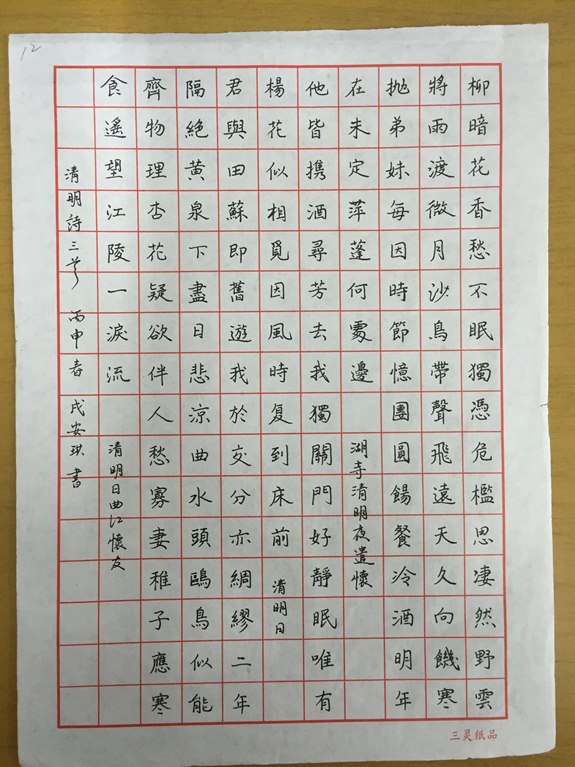 柳暗花香愁不眠獨憑危檻思凄然野雲
將雨渡微月沙鳥帶聲飛遠天久向饑寒
抛弟妹每因時節憶團圓餳餐冷酒明年
在未定萍蓬何處邊 湖寺清明夜遣懷
他皆携酒尋芳去我獨關門好靜眠唯有
楊花似相覓因風時复到床前 清明日
君與田蘇即舊遊我於交分亦綢繆二年
隔絶黄泉下盡日悲凉曲水頭鷗鳥似能
齊物理杏花疑欲伴人愁寡妻稚子應寒
食遥望江陵一淚流 清明日曲江懷友
清明詩三首 丙申春 戌安琪書
12
三灵纸品